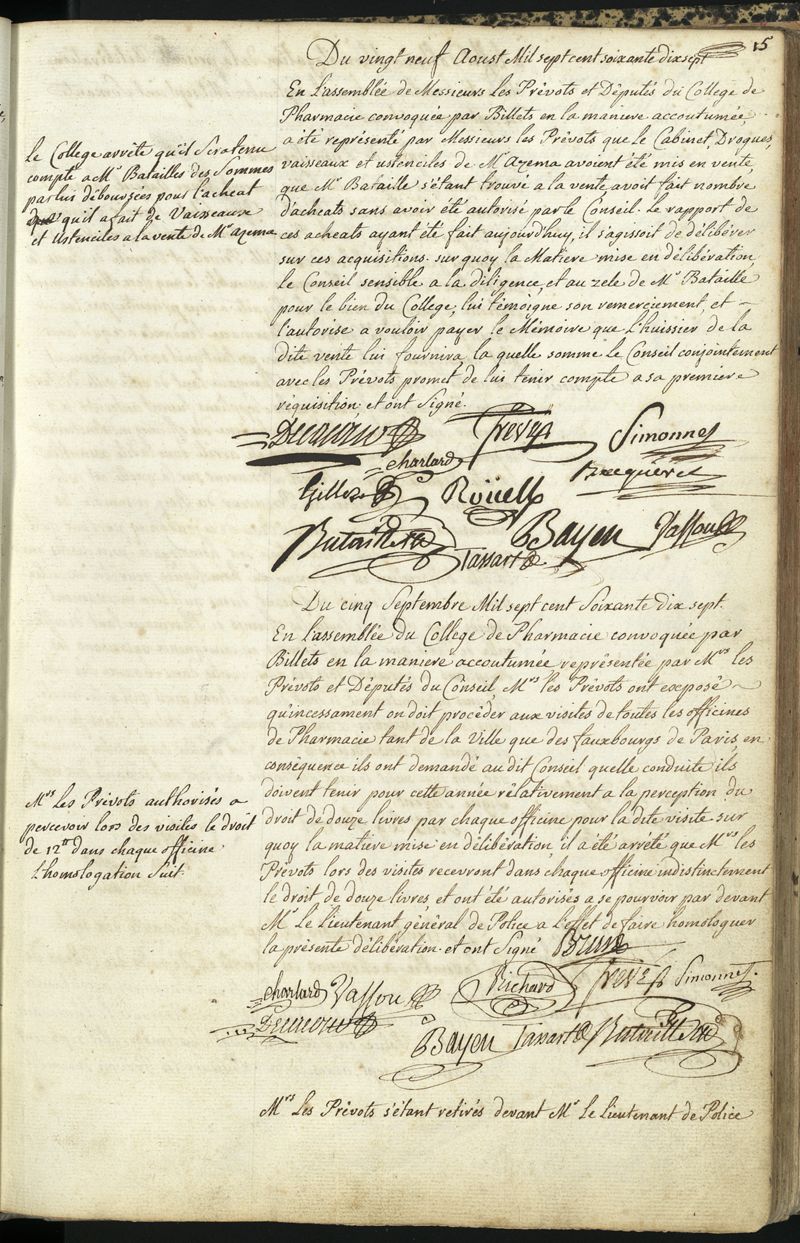 15
Du vingt neuf Aoust Mil sept cent soixante dix sept
En L'assemblée de Messieurs Les Prévots et Députés du College de
Pharmacie convoquée par Billets en la maniere accoutumée
a été représenté par Messieurs les Prévots que le Cabinet, Drogues,
vaisseaux et ustenciles de Mr Azema avoient été mis en vente,
que Mr Bataille s'étant trouvé a la vente, avoit fait nombre
d'achats sans avoir été autorisé par le Conseil. Le rapport de
ces acheats ayant été fait aujourd'huy, il s'agissoit de délibérer
sur ces acquisitions. sur quoy la Matiere mise en délibération,
le Conseil sensible a la diligence, et au zele de Mr Bataille
pour le bien du College, lui témoigne son remerciement, et
l'autorise a vouloir payer le Mémoire que L'huissier de la
dite vente lui fournira, la quelle somme le Conseil conjointement
avec les Prévots promet de lui tenir compte a sa premiere
réquisition, et ont Signé.
Le College arrête qu'il Sera tenu
compte a Mr Batailles des Sommes
par lui déboursées pour l'acheat
qu'il a fait de Vaisseaux
et Ustenciles a la vente de Mr azema
Trevez Simonnet
charlard Becqueret
Gillet Roüelle
Bataille Tassart Bayen Vassou
Du cinq Septembre Mil sept cent Soixante dix sept.
En L'assemblée du College de Pharmacie convoquée par
Billets en la maniere accoutumée représentée par Mrs les
Prévots et Députés du Conseil, Mrs les Prévots ont exposé
qu'incessament on doit procéder aux visites de toutes les officines
de Pharmacie tant de la Ville que des fauxbourgs de Paris, en
conséquence ils ont demandé au dit Conseil quelle conduite ils
doivent tenir pour cette année rélativement a la perception du
droit de douze livres par chaque officine pour la dite visite. sur
quoy la matiere mise en délibération, il a été arrêté que Mrs les
Prévots lors des visites recevront dans chaque officine indistinctement
le droit de douze livres, et ont été autorisés a se pourvoir par devant
Mr Le Lieutenant général de Police a L'effet de faire homologuer
la présente délibération. et ont Signé Brun
Mrs Les Prévots authorisés a
percevoir lors des visites le droit
de 12tt dans chaque officine
L'homologation Suit.
charlard Vassou Richard Trevez Simonnet
Bayen Tassart Bataille
Mrs Les Prévots s'étant retirés devant Mr Le Lieutenant de Police